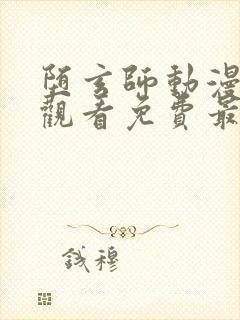 陌玄師動漫
觀看免費最
錢穆